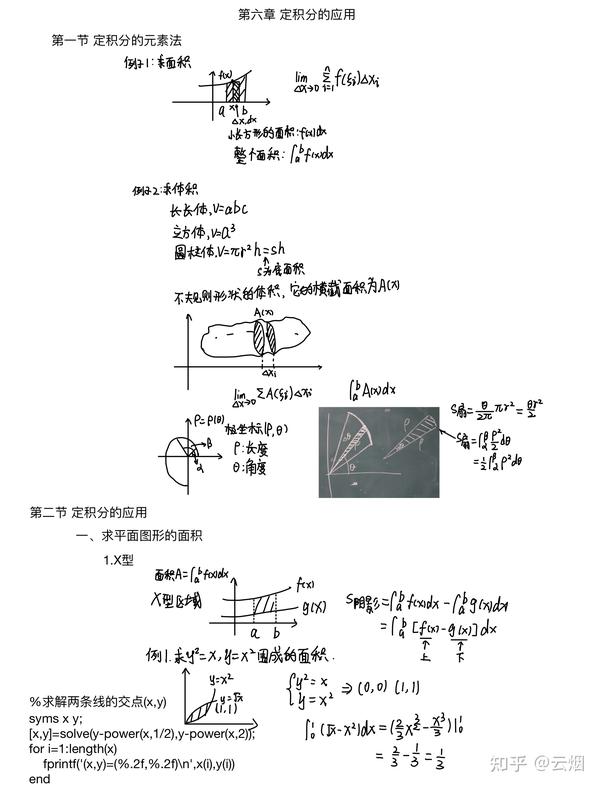 第六章 定积分的应用
第一节 定积分的元素法
例子1:求面积
f(x)
a x b
Δx,dx
lim Δx→0 Σ i=1 n f(ξi)Δxi
小长方形的面积:f(x)dx
整个面积:∫a^b f(x)dx
例子2:求体积
长长体,V=abc
立方体,V=a³
圆柱体,V=πr²h=sh
S为底面积
不规则形状的体积,它的横截面积为A(x)
A(x)
Δxi
lim Δx→0 ΣA(ξi)Δxi
∫a^b A(x)dx
ρ=ρ(θ)
β
α
极坐标(ρ,θ)
ρ:长度
θ:角度
S扇=θ/2π πr²=θr²/2
S扇=∫α^β ρ²/2 dθ
=1/2∫α^β ρ²dθ
第二节 定积分的应用
一、求平面图形的面积
1.X型
面积A=∫a^b f(x)dx
X型区域
f(x)
g(x)
a b
S阴影=∫a^b f(x)dx-∫a^b g(x)dx
=∫a^b [f(x)-g(x)]dx
上 下
例1.求y²=x,y=x²围成的面积.
y=x²
y=√x
(1,1)
{y²=x
y=x² ⇒(0,0) (1,1)
∫0^1 (√x-x²)dx=(2/3 x^3/2-x³/3)|0^1
=2/3-1/3=1/3
%求解两条线的交点(x,y)
syms x y;
[x,y]=solve(y-power(x,1/2),y-power(x,2));
for i=1:length(x)
fprintf('(x,y)=(%.2f,%.2f)\n',x(i),y(i))
end
知乎 @云烟